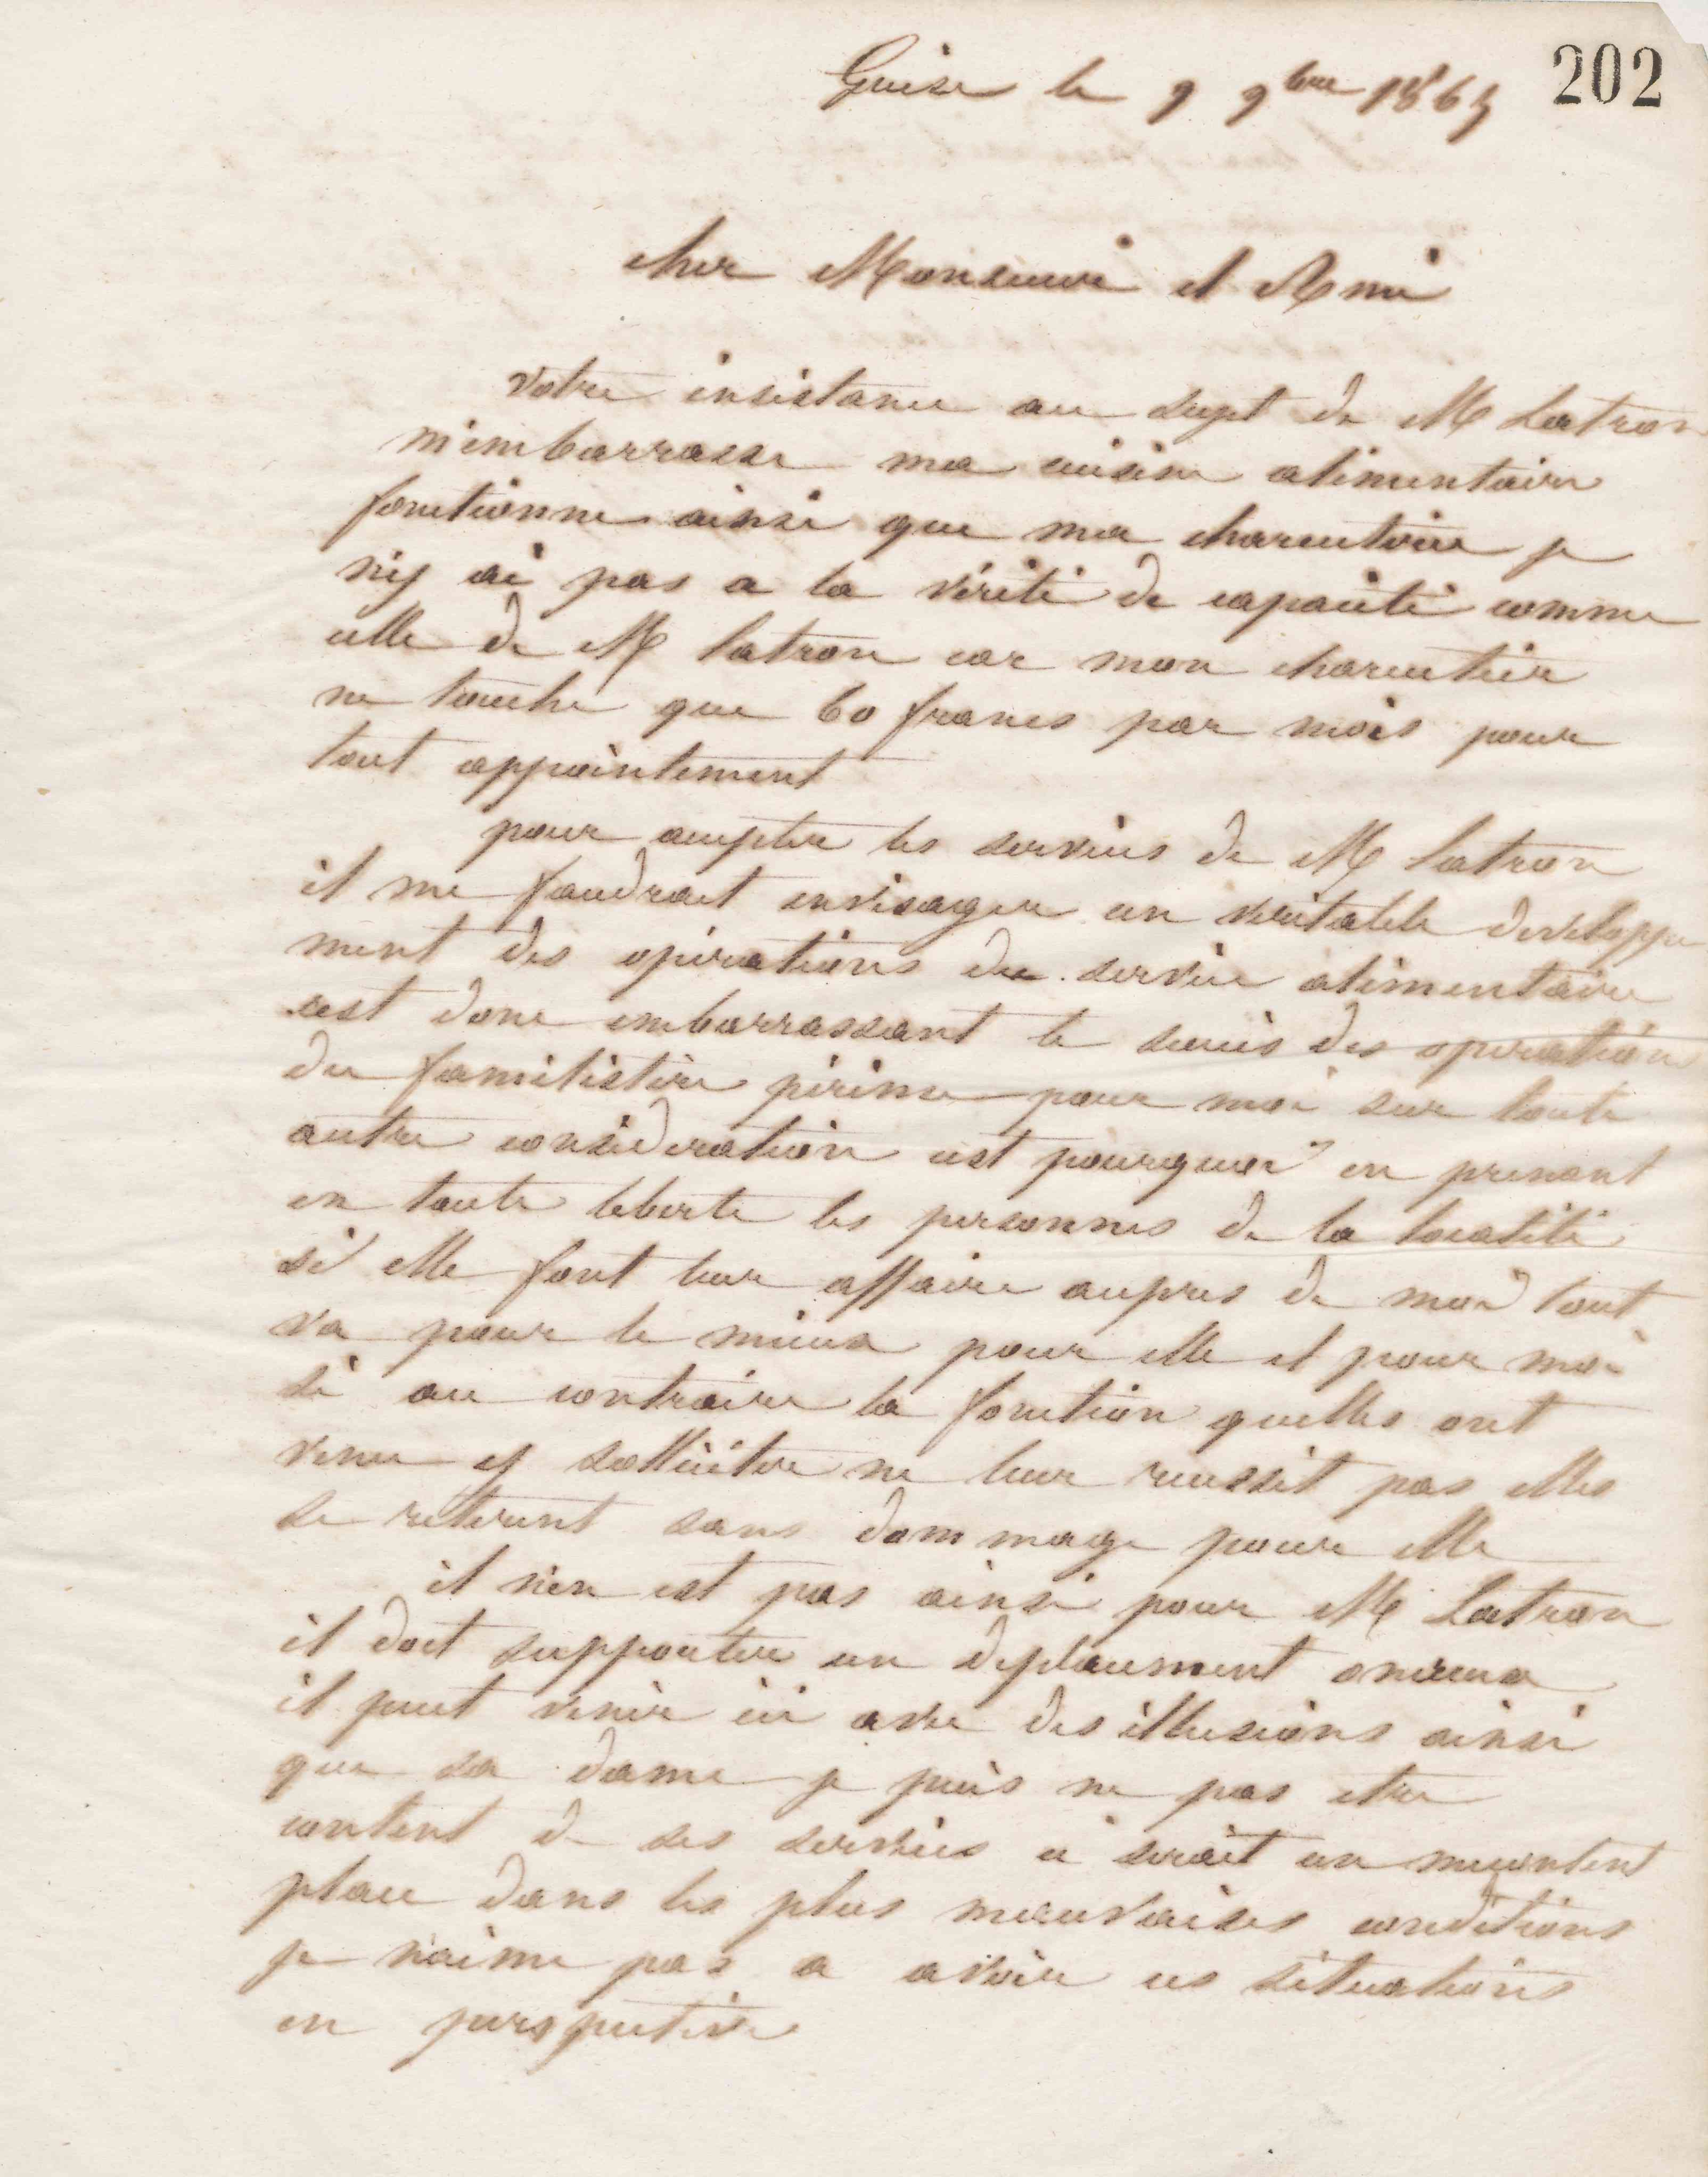 202
Guise le 9 9bre 1865
cher Monsieur et Ami
votre insistance au sujet de M Latron
m'embarrasse ma cuisine alimentaire
fonctionne ainsi que ma charcuterie je
n'y ai pas a la vérité de capacité comme
celle de M Latron car mon charcutier
ne touche que 60 francs par mois pour
tout appointement
pour accepter les services de M Latron
il me faudrait envisager un veritable developpe
ment des opérations du service alimentaire
cest donc embarrassant le succès des operations
du familistère périme pour moi sur toute
autre consideration cest pourquoi en prenant
en toute liberte les personnes de la localité
si elle font leur affaire aupres de moi tout
va pour le mieux pour elle et pour moi
si au contraire la fonction quelles ont
venu y solliciter ne leur reussit pas elles
se retirent sans dommage pour elle
il n'en est pas ainsi pour M Latron
il doit supporter un deplacement onéreux
il peut venir ici avec des illusions ainsi
que sa dame je puis ne pas etre
content de ses services ce serait un mecontent
place dans les plus mauvaises conditions
je n'aime pas a avoir ces situations
en perspective